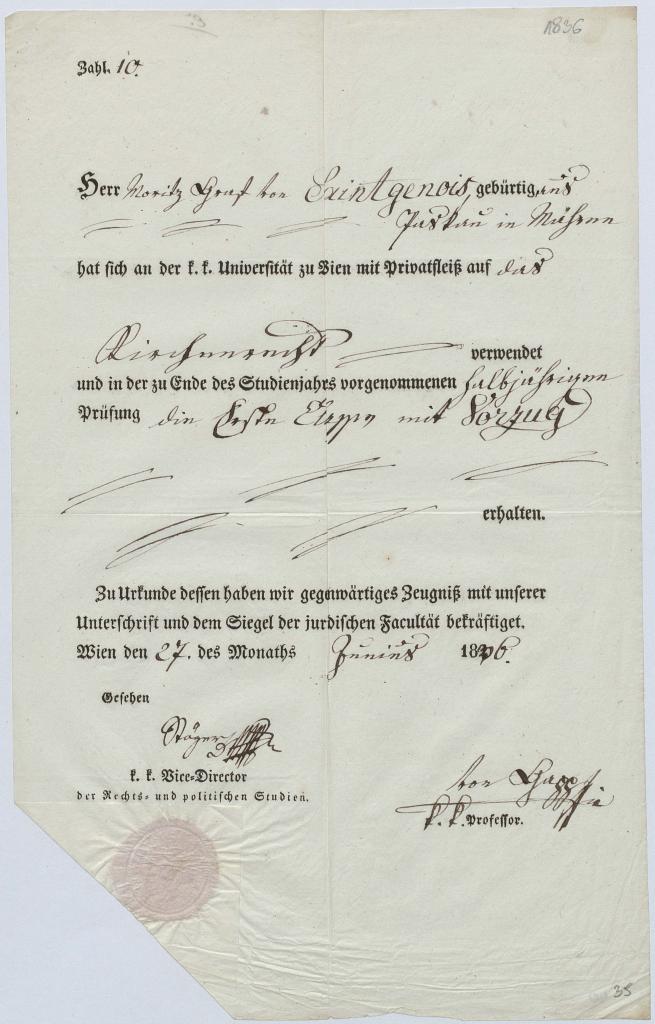 1836
Zahl. 10.
Herr Moritz Graf von Saintgenois, gebürtig, aus
Paskau in Mähren
hat sich an der k. k. Universität zu Wien mit Privatfleiß auf das
Kirchenrecht verwendet
und in der zu Ende des Studienjahrs vorgenommenen halbjährigen
Prüfung die Erste Classe mit Vorzug
erhalten.
Zu Urkunde dessen haben wir gegenwärtiges Zeugniß mit unserer
Unterschrift und dem Siegel der jurdischen Facultät bekräftiget.
Wien den 27. des Monaths Junius 1836.
Gesehen
Stöger
k. k. Vice-Director
der Rechts- und politischen Studien.
von
k. k. Professor.
35